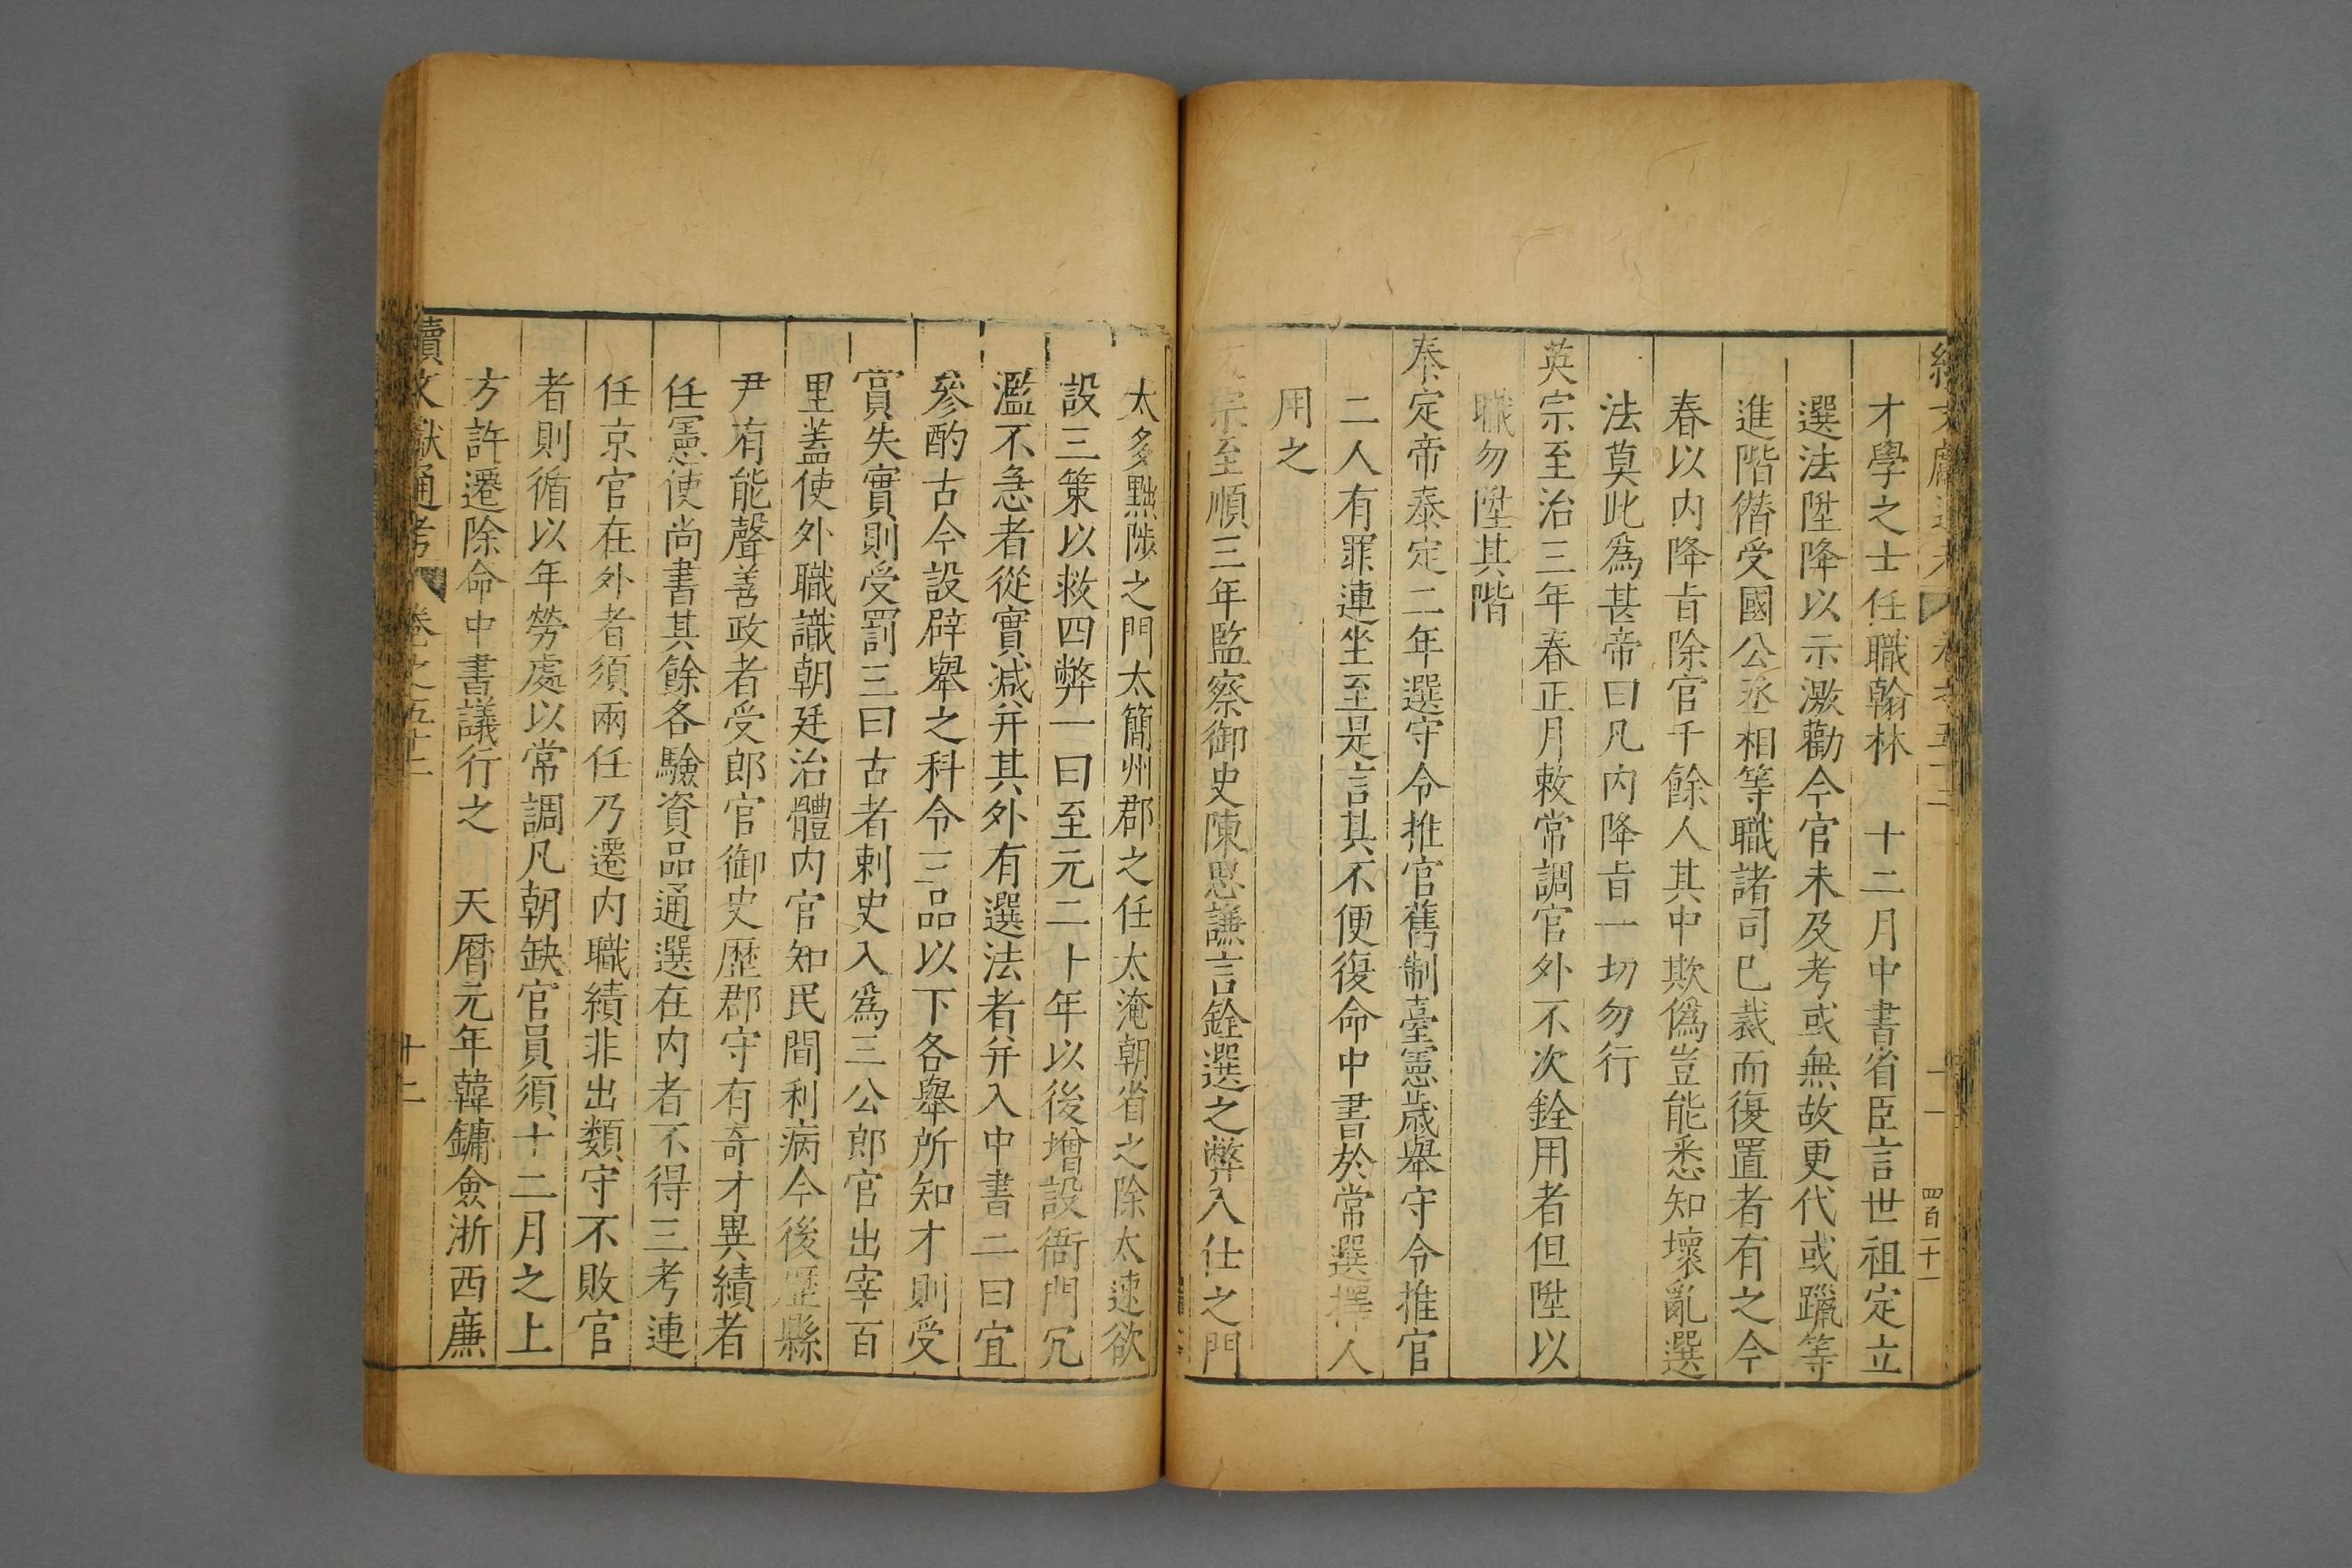 才學之士任職翰林　十二月中書省臣言世祖定立
選法陞降以示激勸今官未及考或無故更代或躐等
進階僭受國公丞相等職諸司已裁而復置者有之今
春以內降旨除官千餘人其中欺僞豈能悉知壞亂選
法莫此爲甚帝曰凡內降旨一切勿行
英宗至治三年春正月敕常調官外不次銓用者但陞以
職勿陞其階
泰定帝泰定二年選守令推官舊制臺憲歲舉守令推官
二人有罪連坐至是言其不便復命中書於常選擇人
用之
宗至順三年監察御史陳思謙言銓選之弊入仕之門
太多黜陟之門太簡州郡之任太淹朝省之除太速欲
設三策以救四弊一曰至元二十年以後增設衙門冗
濫不急者從實減并其外有選法者并入中書二曰宜
參酌古今設辟舉之科令三品以下各舉所知才則受
賞失實則受罰三曰古者刺史入爲三公郎官出宰百
里蓋使外職識朝廷治體內官知民間利病今後歷縣
尹有能聲善政者受郎官御史歷郡守有奇才異績者
任憲使尚書其餘各驗資品通選在內者不得三考連
任京官在外者須兩任乃遷內職績非出類守不敗官
者則循以年勞處以常調凡朝缺官員須十二月之上
方許遷除命中書議行之　天曆元年韓鏞僉浙西廉
續文獻通考　卷之五十二　十二